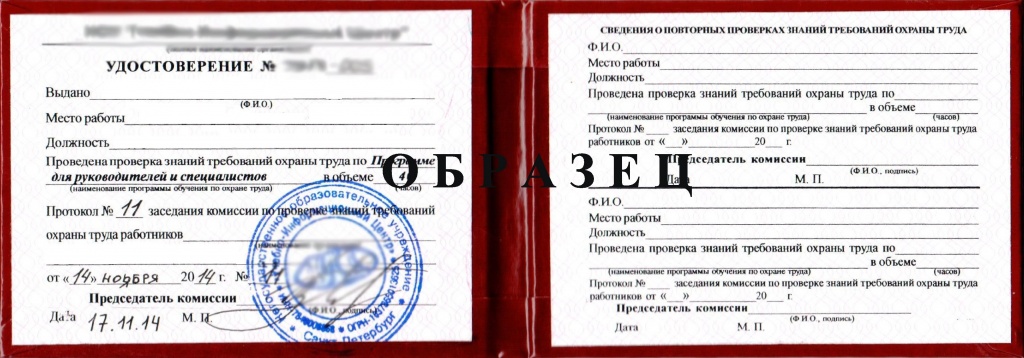 УДОСТОВЕРЕНИЕ №
Выдано
(Ф.И.О.)
Место работы
Должность
Проведена проверка знаний требований охраны труда по Программе
для руководителей и специалистов в объеме 40
(наименование программы обучения по охране труда) (часов)
Протокол № 11 заседания комиссии по проверке знаний требований
охраны труда работников
от «14» ноября 2014 г. №
Председатель комиссии
(Ф.И.О., подпись)
Дата 17.11.14 М. П.
Санкт-Петербург
ОБРАЗЕЦ
СВЕДЕНИЯ О ПОВТОРНЫХ ПРОВЕРКАХ ЗНАНИЙ ТРЕБОВАНИЙ ОХРАНЫ ТРУДА
Ф.И.О.
Место работы
Должность
Проведена проверка знаний требований охраны труда по
в объеме
(наименование программы обучения по охране труда) (часов)
Протокол № заседания комиссии по проверке знаний требований охраны труда
работников от « » 20 г.
Председатель комиссии
(Ф.И.О., подпись)
Дата М. П.
Ф.И.О.
Место работы
Должность
Проведена проверка знаний требований охраны труда по
в объеме
(наименование программы обучения по охране труда) (часов)
Протокол № заседания комиссии по проверке знаний требований охраны труда
работников от « » 20 г.
Председатель комиссии
(Ф.И.О., подпись)
Дата М. П.